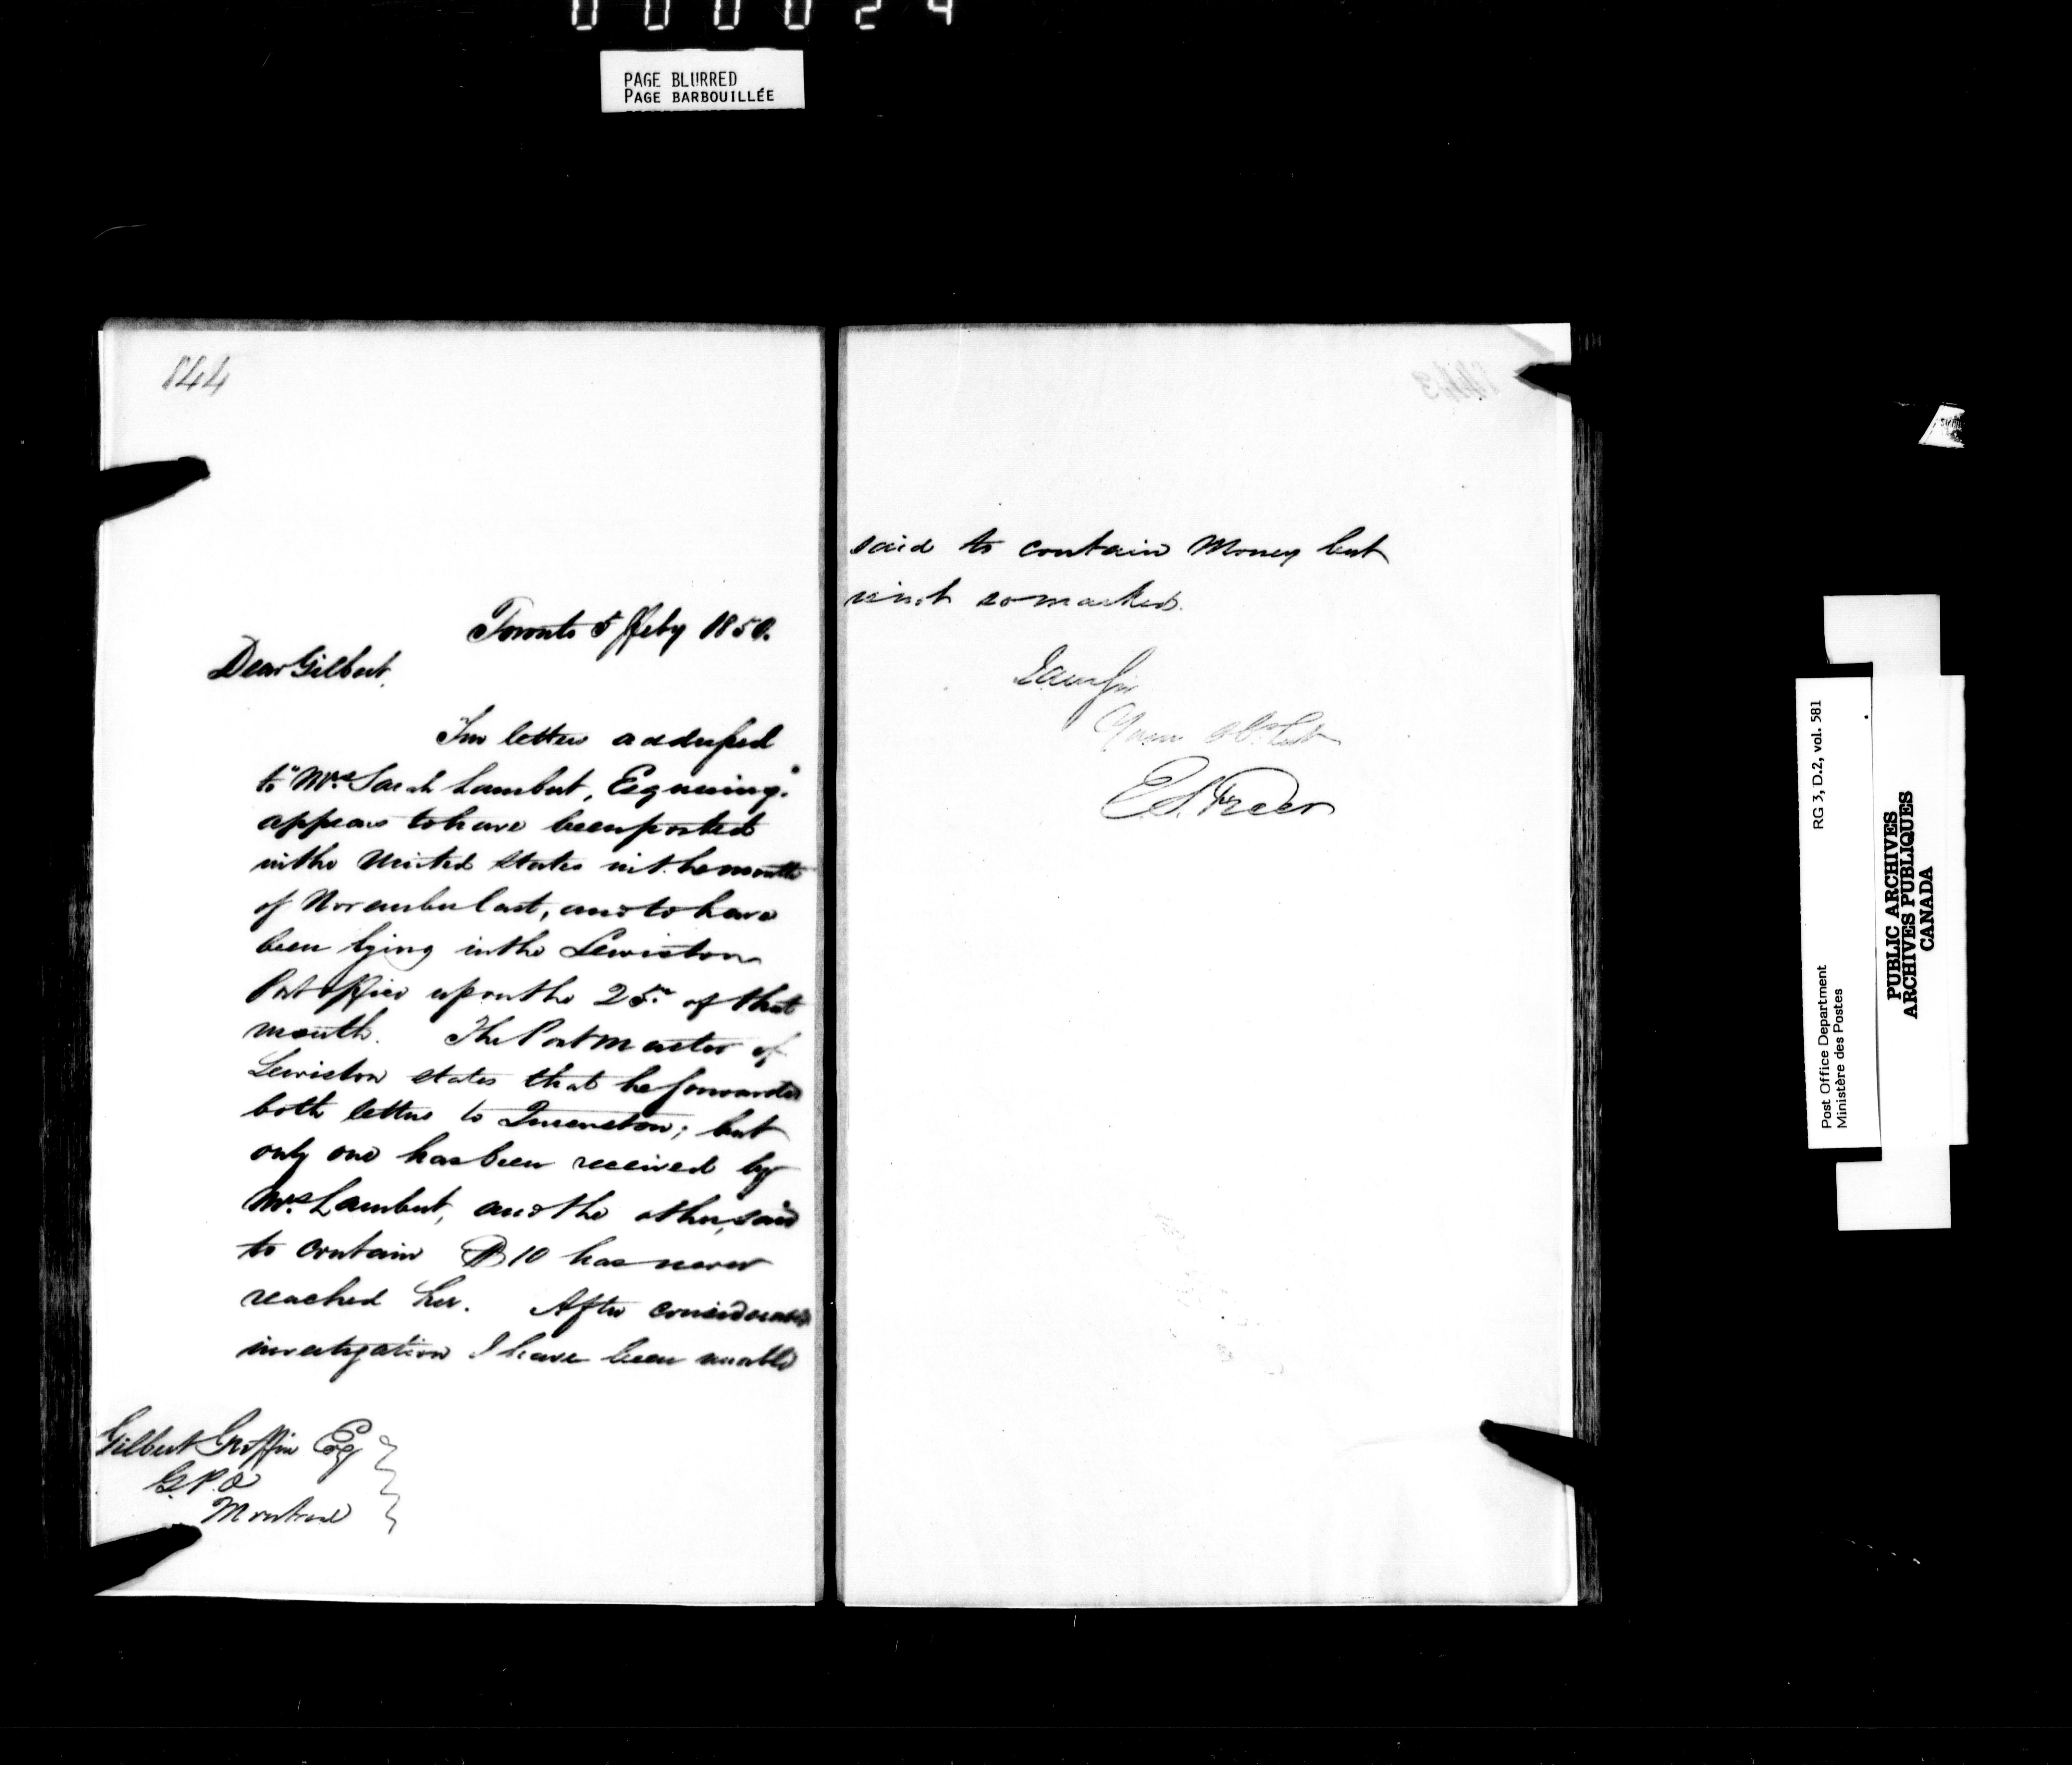 000024
PAGE BLURRED
PAGE BARBOUILLÉE
144
Toronto 5 Feby 1850.
Dear Gilbert,
Two letters addressed
to "Mrs Sarah Lambert, Esquesing"
appear to have been posted
in the United States in the month
of November last, and to have
been lying in the Lewiston
Post Office upon the 25th of that
month. The Post Master of
Lewiston states that he forwarded
both letters to Queenston; but
only one has been received by
Mrs Lambert, and the other, said
to contain $10 has never
reached her. After considerable
investigation I have been unable
Gilbert Griffin Esq
G.P.O
Montreal
said to contain Money but
not so marked.
I am Sir
Your Ob. Svt
E. S. Freer
RG 3, D.2, vol. 581
Post Office Department
Ministère des Postes
PUBLIC ARCHIVES
ARCHIVES PUBLIQUES
CANADA